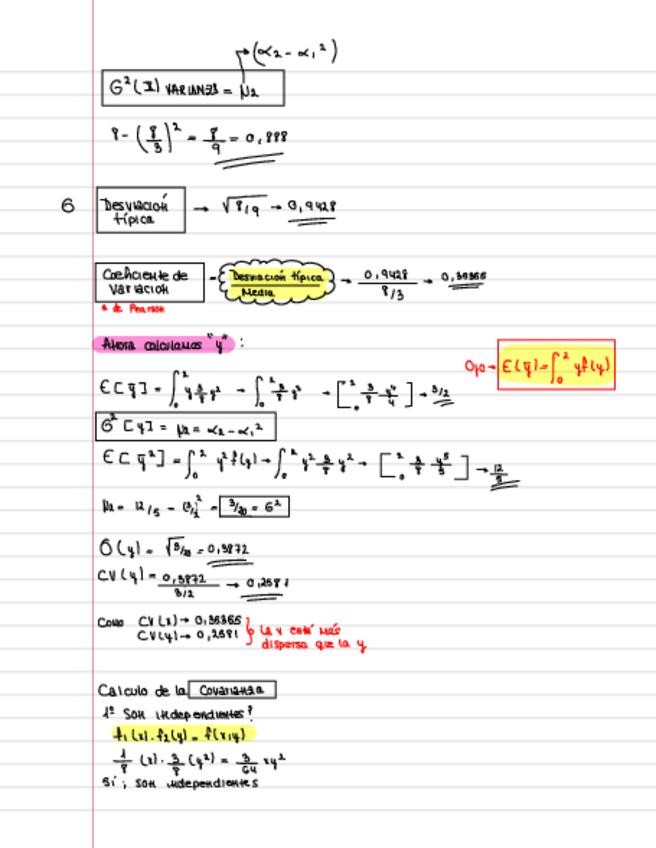 (α2 - α1²)
G²(X) VARIANZA = μ2
8 - (8/3)² = 8/9 = 0,888
6 Desviación típica → √8/9 → 0,9428
Coeficiente de variación - Desviación típica / Media → 0,9428 / 8/3 → 0,35355
* de Pearson
Ahora calculamos "y" :
Ojo → E(y) = ∫₀² y f(y)
E[y] = ∫₀² y 3/8 y² → ∫₀² 3/8 y³ → [₀² 3/8 y⁴/4] → 3/2
G² [y] = μ2 = α2 - α1²
E[y²] = ∫₀² y² f(y) → ∫₀² y² 3/8 y² → [₀² 3/8 y⁵/5] → 12/5
μ2 = 12/5 - (3/2)² = 3/20 = G²
G(y) = √3/20 = 0,3872
CV(y) = 0,3872 / 3/2 → 0,2581
Como CV(x) → 0,35355 } La x está más
CV(y) → 0,2581 dispersa que la y
Calculo de la Covarianza
1º Son independientes?
f1(x) · f2(y) = f(x,y)
1/8 (x) · 3/8 (y²) = 3/64 xy²
Sí ; son independientes